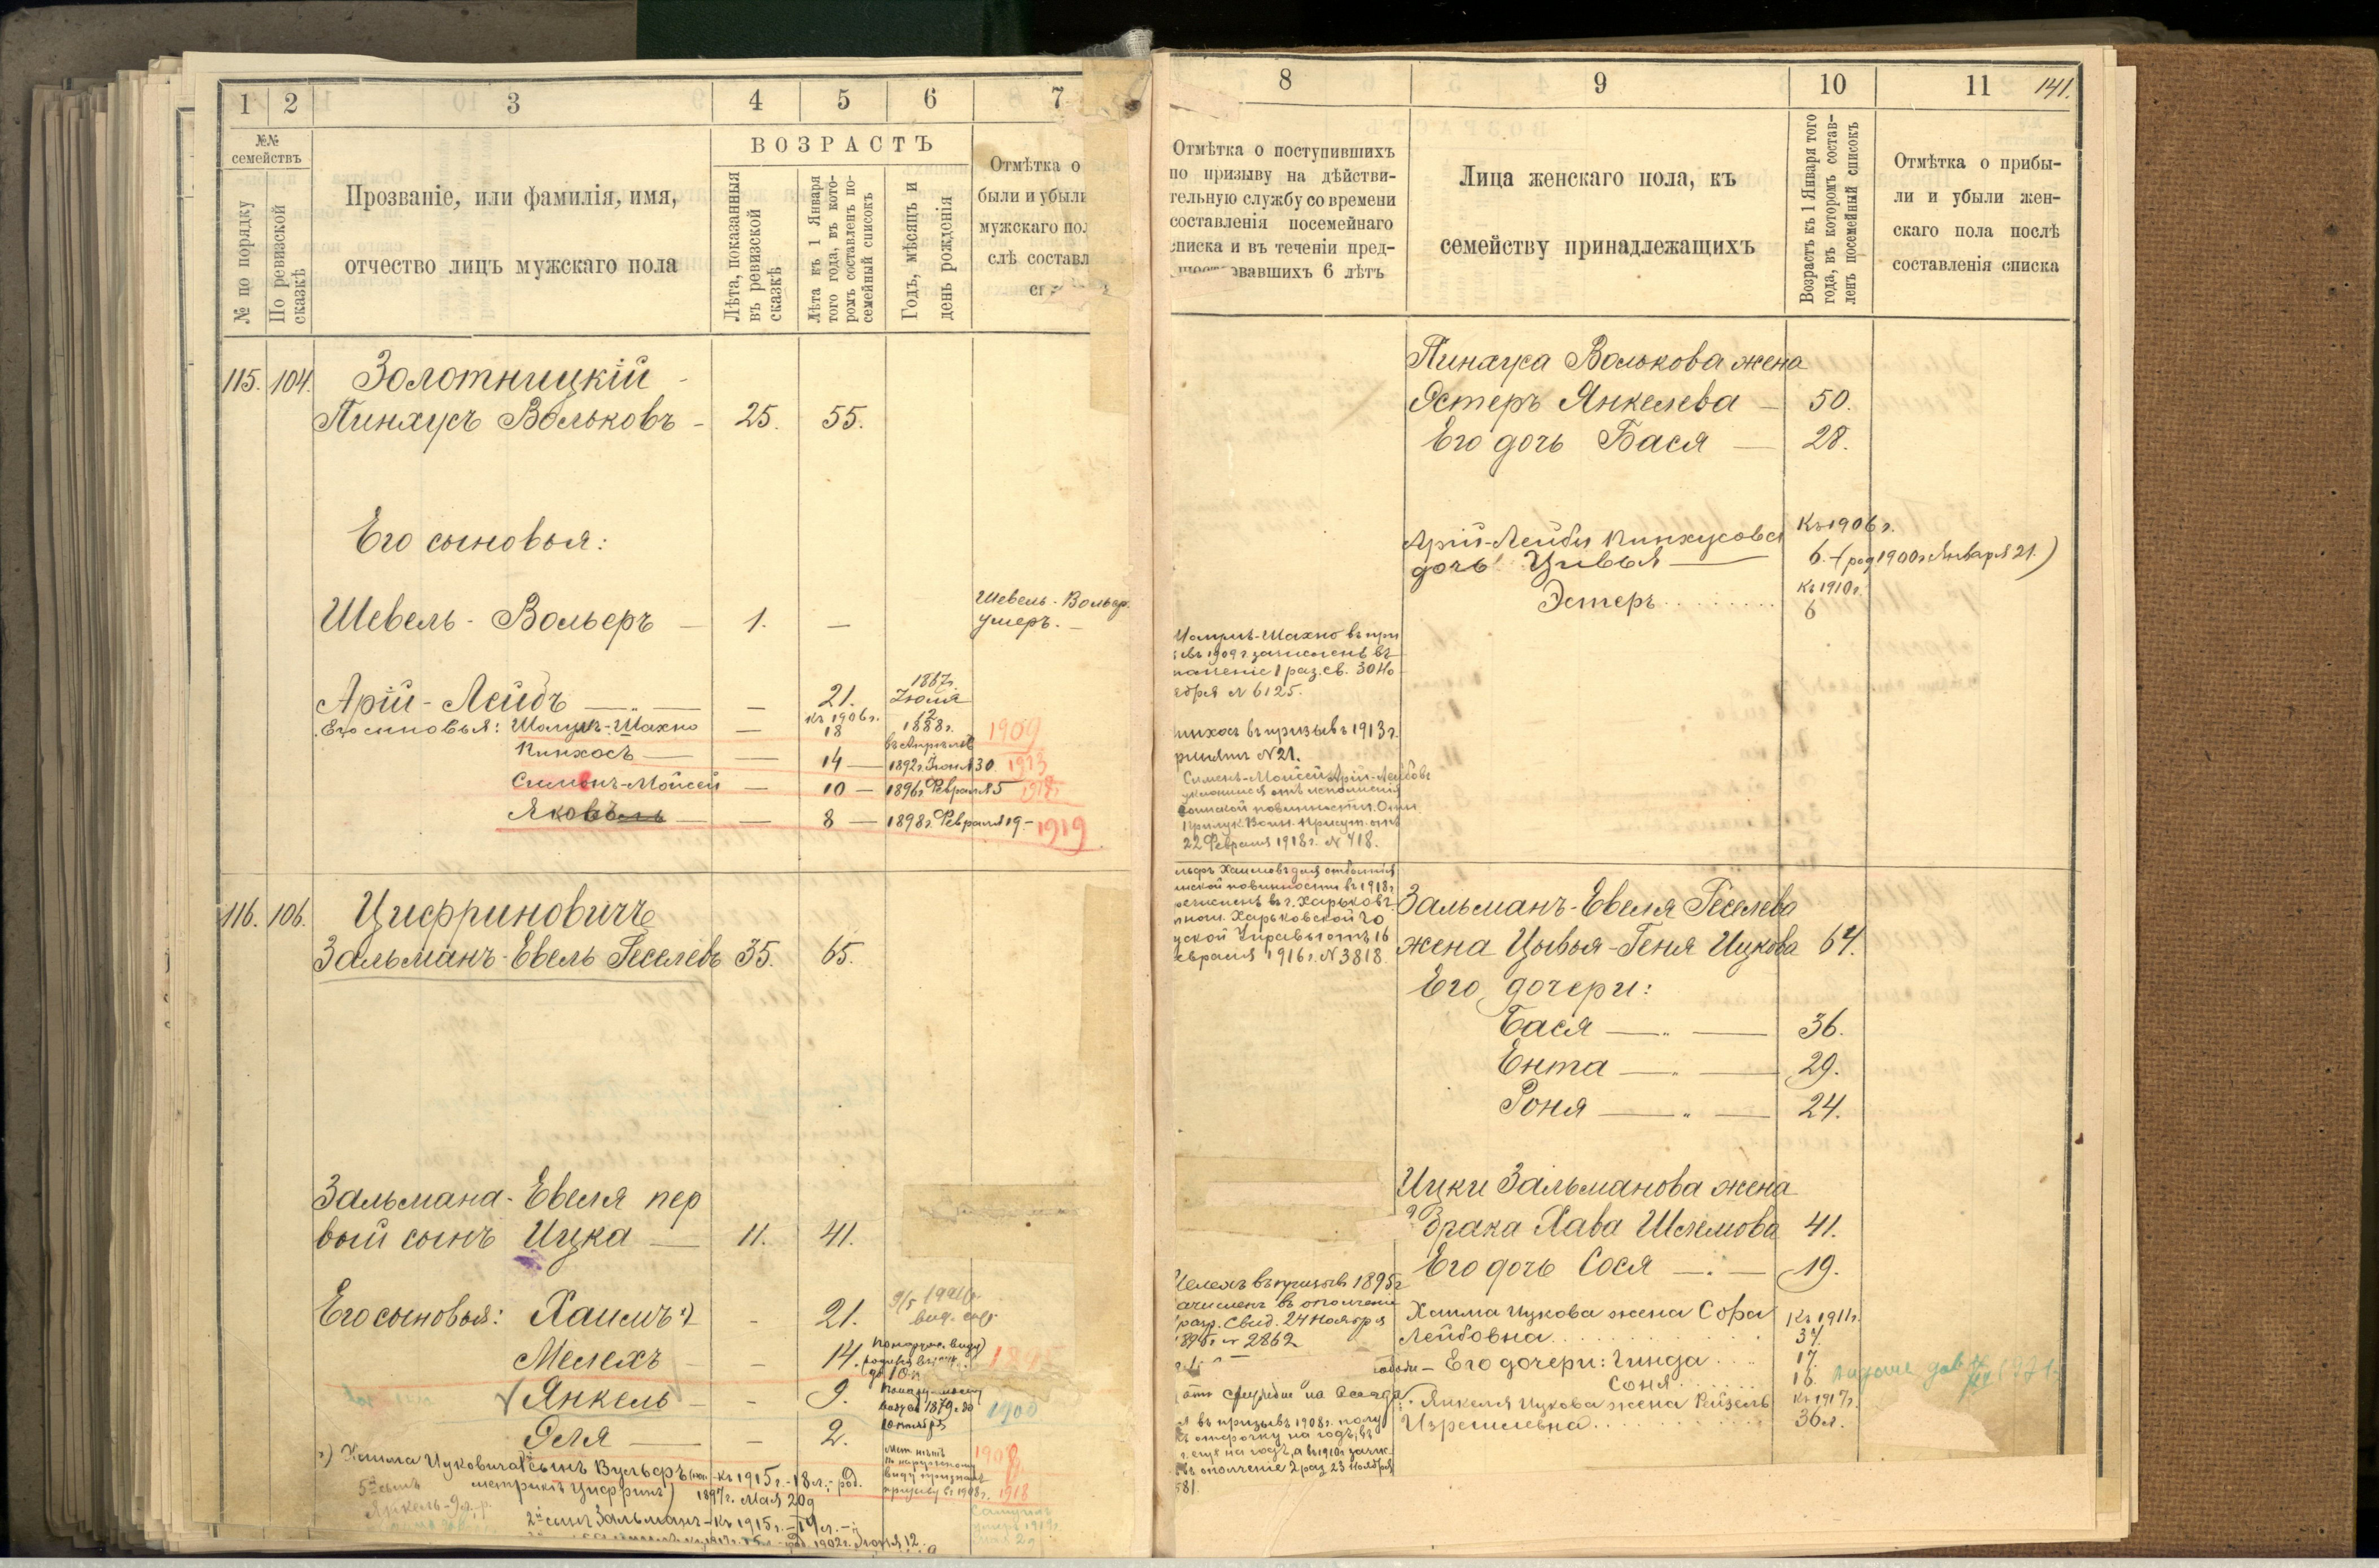 1
2
3
4
5
6
7
№№
семействъ
№ по порядку
По ревизской
сказкѣ
Прозваніе, или фамилія, имя,
отчество лицъ мужскаго пола
ВОЗРАСТЪ
Лѣта, показанныя
въ ревизской
сказкѣ
Лѣта къ 1 Января
того года, въ кото-
ромъ составленъ по-
семейный списокъ
Годъ, мѣсяцъ и
день рожденія
Отмѣтка о
были и убыли
мужскаго пол
слѣ составл
115. 104. Золотницкій
Пинхусъ Вольковъ - 25. 55.
Его сыновья:
Шевель - Вольеръ — 1. —
Шевель - Вольер.
умеръ. —
Арій - Лейбъ — — 21. 1867г. Іюля 12
Его сыновья: Шолумъ-Шахно — къ 1906г. 18 1888г. въ Апрелѣ 1909
Пинхосъ — — 14 — 1892г. Іюня 30. 1913
Симонъ-Мойсей — 10 — 1896г. Февраля 5
Яковъ — — 8 — 1898г. Февраля 19 - 1919
116. 106. Цифриновичъ
Зальманъ-Евель Геселевъ 35. 65.
Зальмана-Евеля пер
вый сынъ Ицка — 11. 41.
Его сыновья: Хаимъ - 21.
Мелехъ - - 14. 1895
Янкель - - 9. 1900
Еля — - 2. 1908
Хаима Ицковича 1й сынъ Вульфъ - къ 1915г. - 18 л.; род.
метрикѣ Цифринъ) 1897г. мая 20д
1918
2й сынъ Зальманъ - къ 1915г. - 14 л.
1902г. Іюня 12.
8
9
10
11
141.
Отмѣтка о поступившихъ
по призыву на дѣйстви-
тельную службу со времени
составленія посемейнаго
списка и въ теченіи пред-
овавшихъ 6 лѣтъ
Лица женскаго пола, къ
семейству принадлежащихъ
Возрастъ къ 1 Января того
года, въ которомъ состав-
ленъ посемейный списокъ
Отмѣтка о прибы-
ли и убыли жен-
скаго пола послѣ
составленія списка
Пинхуса Волькова жена
Эстеръ Янкелева — 50.
Его дочь Бася — 28.
Арій-Лейбы Пинхусова къ 1906г.
дочь Цивья — 6. - (род 1900г Января 21.)
Эстеръ къ 1910г. 6
Шолумъ-Шахно въ при
въ 1909г зачисленъ въ
полченіе 1 раз. св. 30 Но
ября № 6125.
инхосъ въ призывъ 1913г.
принятъ № 21.
Симонъ-Мойсей Арій-Лейбовъ
уклонился отъ исполненія
воинской повинности. Отн.
Прилук. Воин. Присут. отъ
22 Февраля 1918г. № 418.
льфъ Хаимовъ для отбытія
инской повинности въ 1918г
речисленъ въ г. Харьковъ
тнош. Харьковской Го
дской Управы отъ 16
евраля 1916г. № 3818.
Зальманъ-Евеля Геселева
жена Цывья-Геня Ицкова 64.
Его дочери:
Бася — 36.
Ента — 29.
Роня — 24.
Ицки Зальманова жена
2 брака Хава Шлемова 41.
Его дочь Сося — 19.
Мелехъ въ призывъ 1895г
ачисленъ въ ополчені
разр. Свид. 24 Ноября
1895г № 2862
Хаима Ицкова жена Софа къ 1911г.
Лейбовна 37.
Его дочери: Гинда 17.
Соня 16.
Янкеля Ицкова жена Рейзель къ 1917г.
Израилевна 36 л.
я въ призывъ 1908г. полу
ъ отсрочку на годъ, въ
г. еще на годъ, а въ 1910г зачис
въ ополченіе 2 раз 23 Ноября
581.